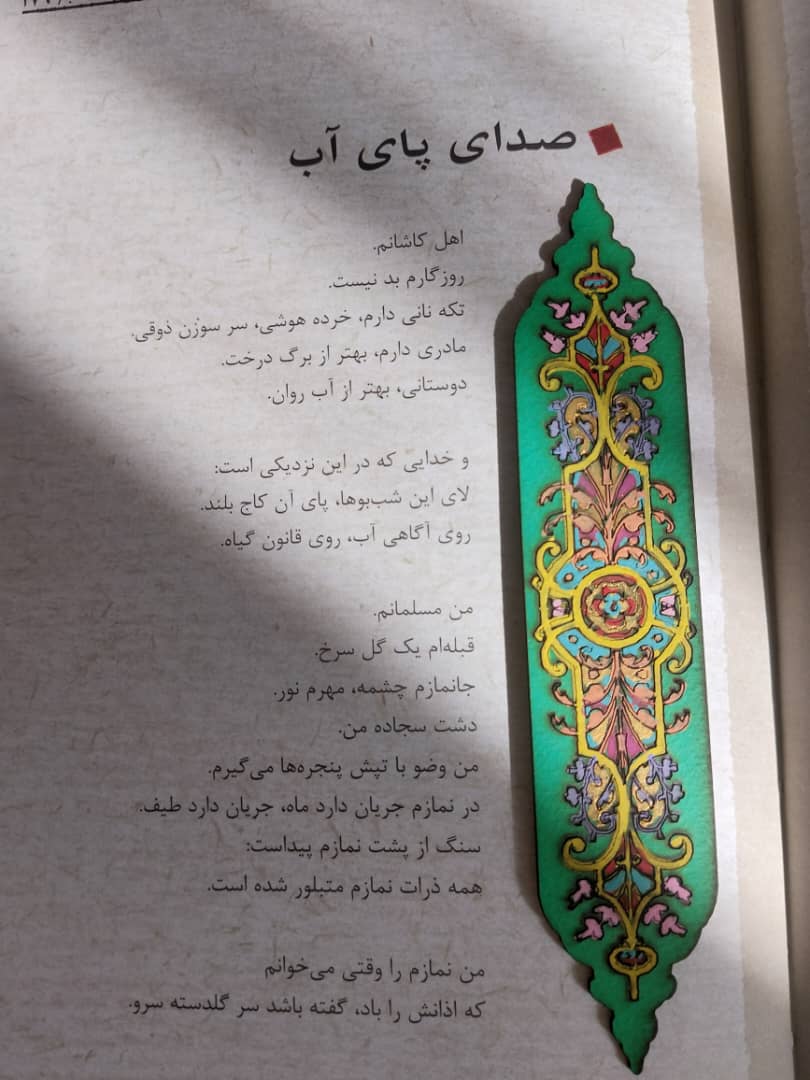 صدای پای آب
اهل کاشانم.
روزگارم بد نیست.
تکه نانی دارم، خرده هوشی، سر سوزن ذوقی.
مادری دارم، بهتر از برگ درخت.
دوستانی، بهتر از آب روان.
و خدایی که در این نزدیکی است:
لای این شب‌بوها، پای آن کاج بلند.
روی آگاهی آب، روی قانون گیاه.
من مسلمانم.
قبله‌ام یک گل سرخ.
جانمازم چشمه، مهرم نور.
دشت سجاده من.
من وضو با تپش پنجره‌ها می‌گیرم.
در نمازم جریان دارد ماه، جریان دارد طیف.
سنگ از پشت نمازم پیداست:
همه ذرات نمازم متبلور شده است.
من نمازم را وقتی می‌خوانم
که اذانش را باد، گفته باشد سر گلدسته سرو.